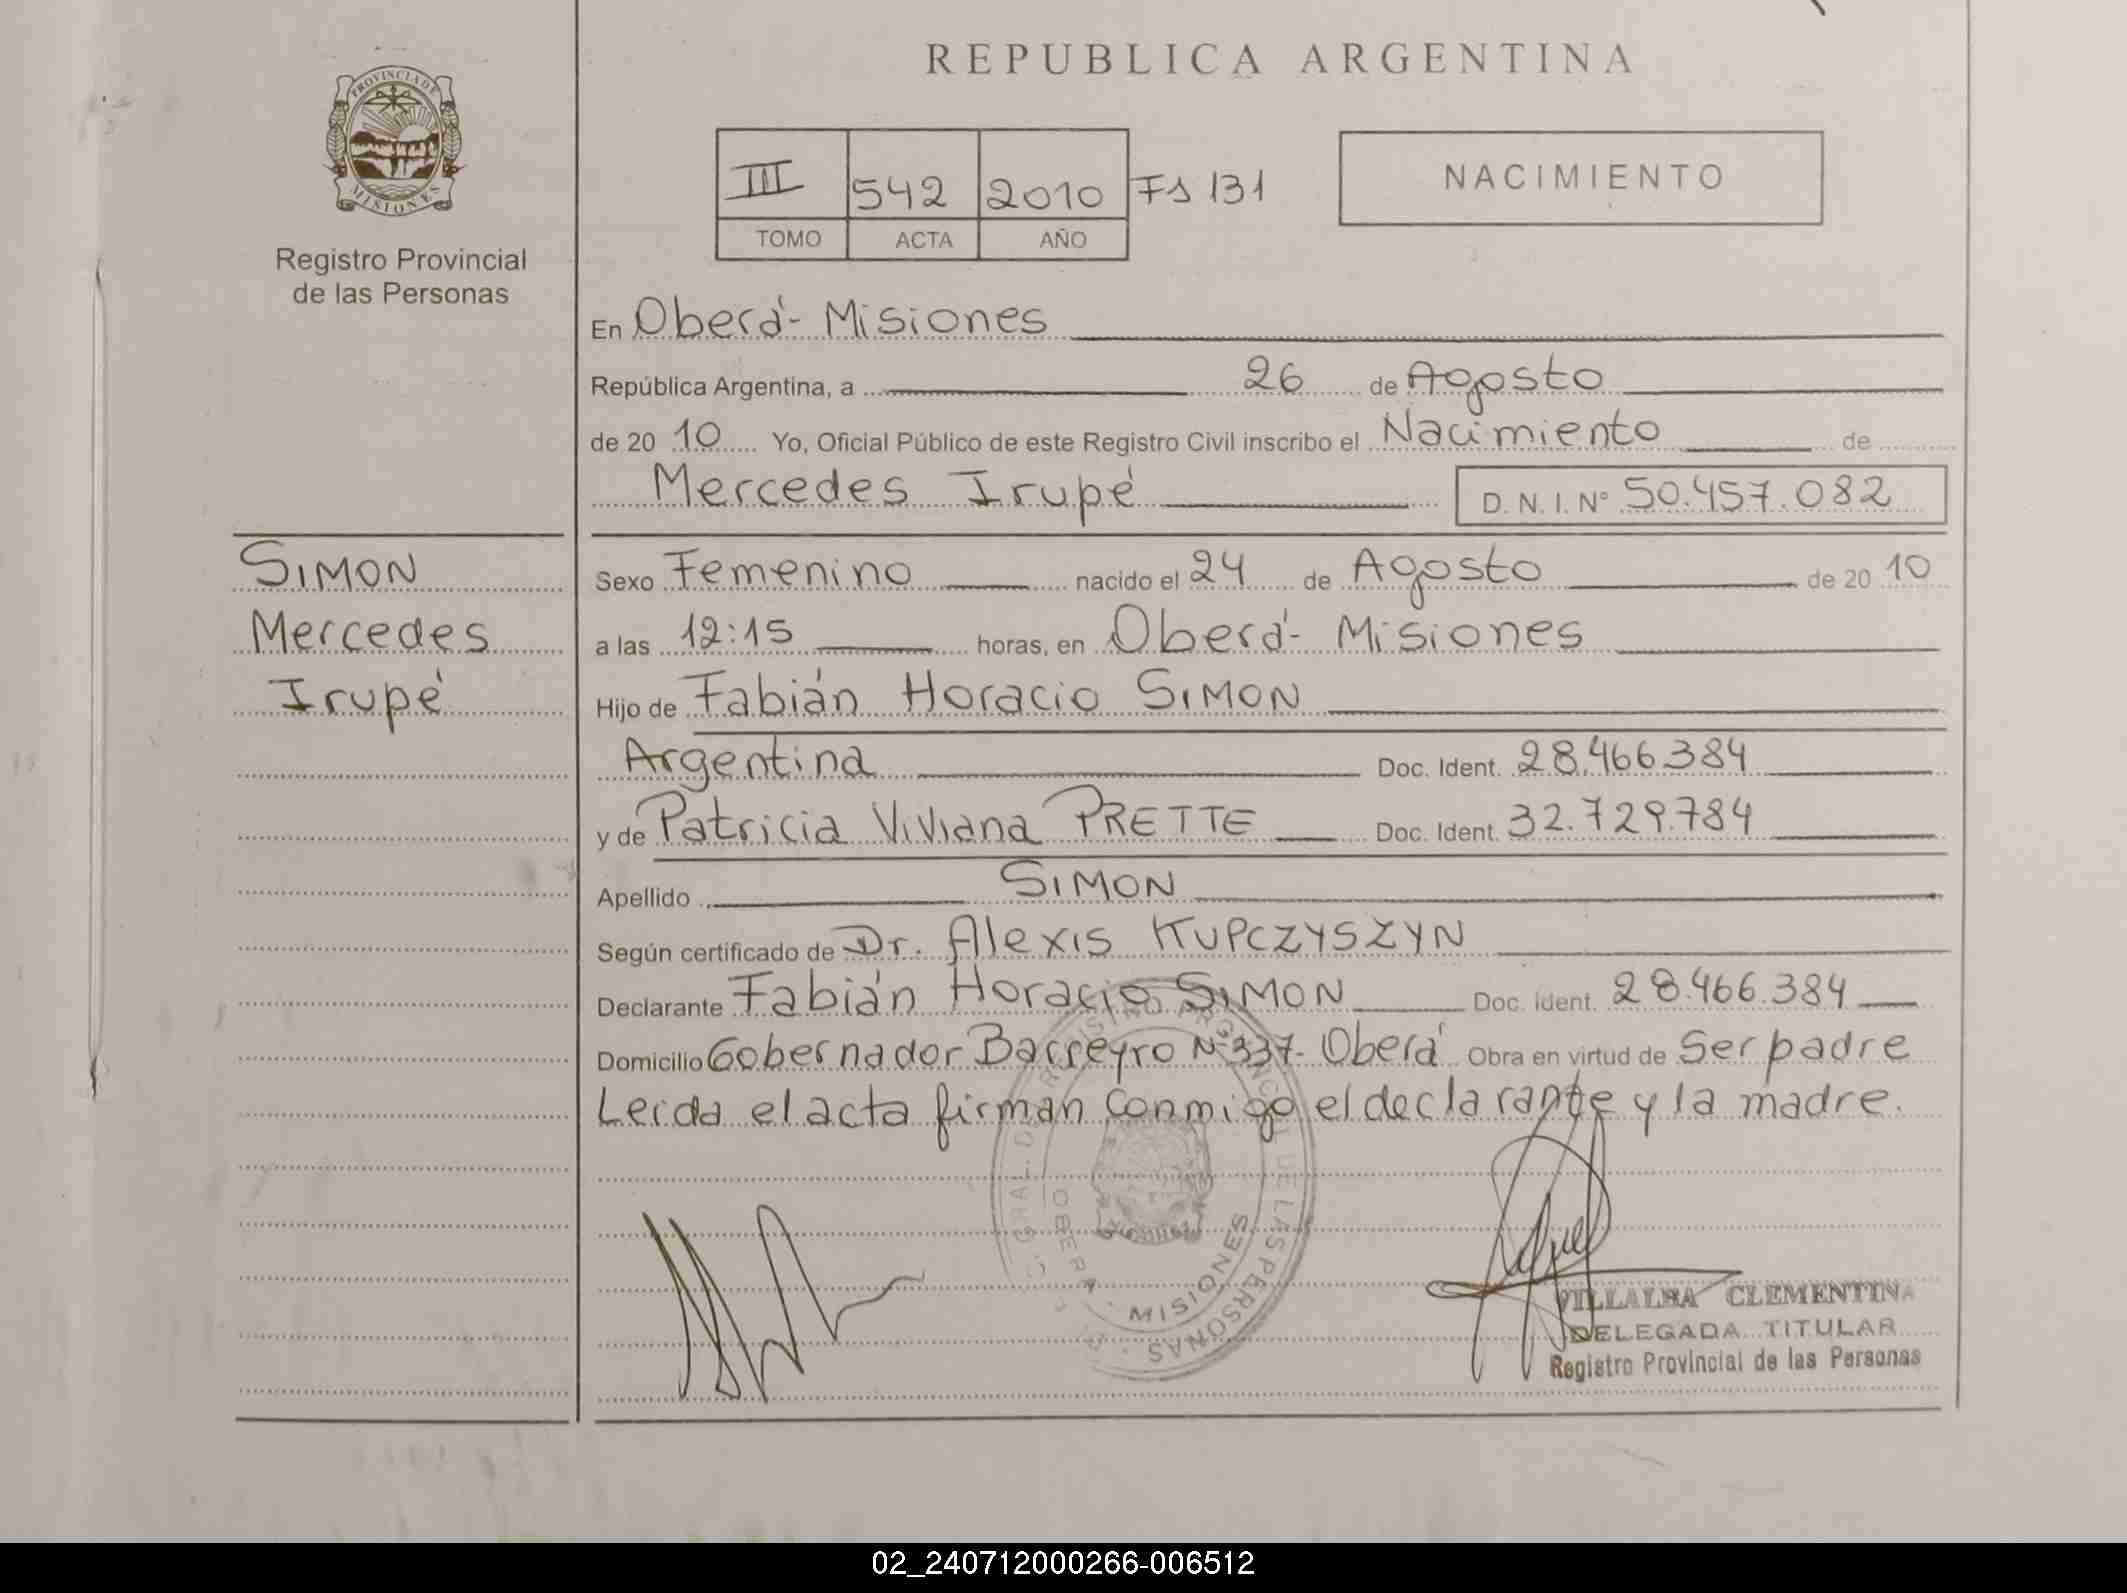 REPUBLICA ARGENTINA
PROVINCIA DE MISIONES
Registro Provincial
de las Personas
III 542 2010 Fs 131
TOMO ACTA AÑO
NACIMIENTO
En Oberá - Misiones
República Argentina, a 26 de Agosto
de 20 10 Yo, Oficial Público de este Registro Civil inscribo el Nacimiento de
Mercedes Irupé D.N.I. Nº 50.457.082
SIMON
Mercedes
Irupé
Sexo Femenino nacido el 24 de Agosto de 20 10
a las 12:15 horas, en Oberá - Misiones
Hijo de Fabián Horacio SIMON
Argentina Doc. Ident. 28.466.384
y de Patricia Viviana PRETTE Doc. Ident. 32.729.784
Apellido SIMON
Según certificado de Dr. Alexis KUPCZYSZYN
Declarante Fabián Horacio SIMON Doc. Ident. 28.466.384
Domicilio Gobernador Barreyro Nº 337- Oberá Obra en virtud de Ser padre
Leida el acta firman conmigo el declarante y la madre.
OBERA - MISIONES
DE LAS PERSONAS
VILLALBA CLEMENTINA
DELEGADA TITULAR
Registro Provincial de las Personas
02_240712000266-006512